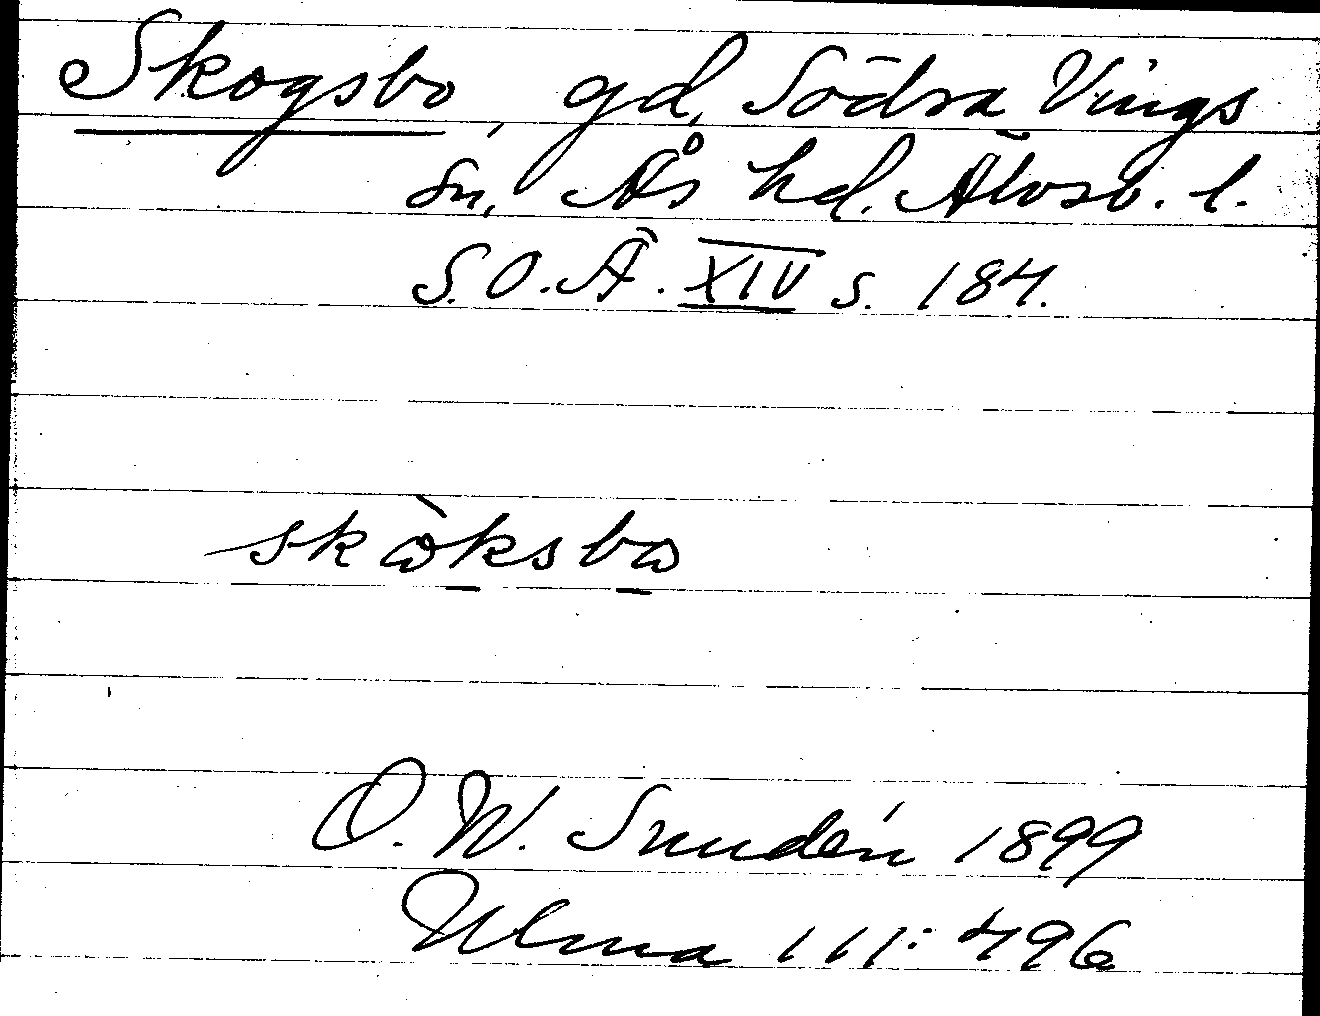 Skogsbo, gd, Södra Vings
sn, Ås hd. Älvsb. l.
S.O.Ä. XIV s. 184.
skòksbo
O. W. Sundén 1899
Ulma 111: 496